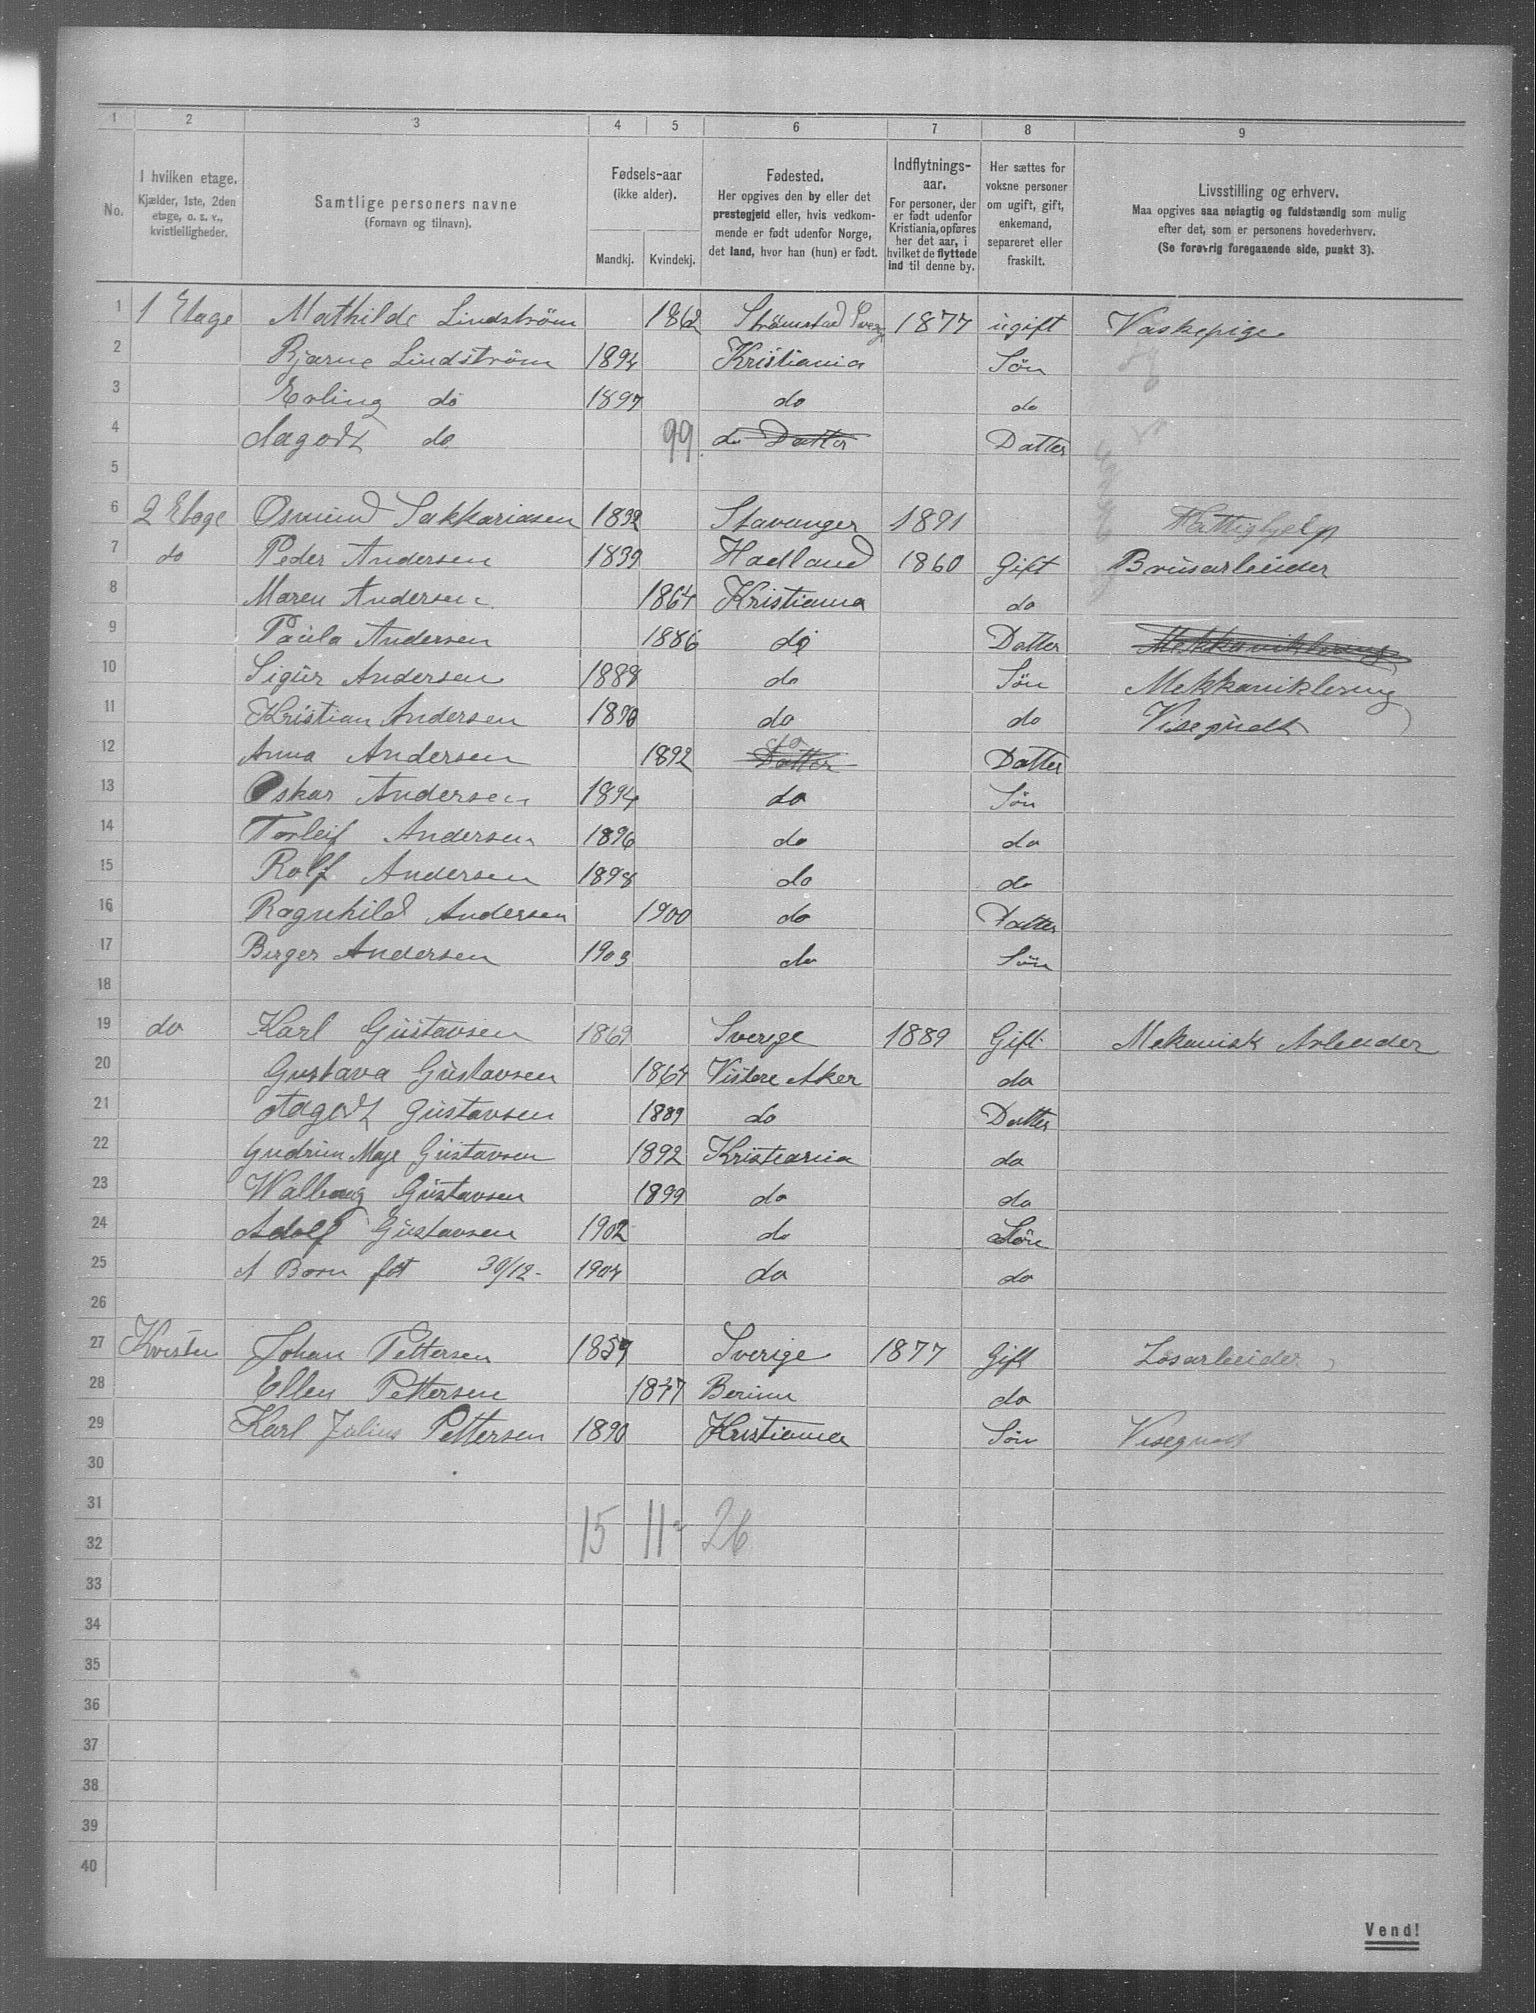 1 2 3 4 5 6 7 8 9
No.
I hvilken etage.
Kjælder, 1ste, 2den
etage, o. s. v.,
kvistleiligheder.
Samtlige personers navne
(Fornavn og tilnavn).
Fødsels-aar
(ikke alder).
Mandkj. Kvindekj.
Fødested.
Her opgives den by eller det
prestegjeld eller, hvis vedkom-
mende er født udenfor Norge,
det land, hvor han (hun) er født.
Indflytnings-
aar.
For personer, der
er født udenfor
Kristiania, opføres
her det aar, i
hvilket de flyttede
ind til denne by.
Her sættes for
voksne personer
om ugift, gift,
enkemand,
separeret eller
fraskilt.
Livsstilling og erhverv.
Maa opgives saa nøiagtig og fuldstændig som mulig
efter det, som er personens hovederhverv.
(Se forøvrig foregaaende side, punkt 3).
1 1 Etage Mathilde Lindström 1862 Strømstad Sverg 1877 ugift Vaskepige
2 Bjarne Lindström 1894 Kristiania Søn
3 Erling do 1897 do do
4 Aagodt do 99 do Datter Datter
5
6 2 Etage Osmund Sakkariasen 1832 Stavanger 1891 Fattighjelp
7 do Peder Andersen 1839 Hadland 1860 Gift Brusarbeider
8 Maren Andersen 1864 Kristiania do
9 Paula Andersen 1886 do Datter Mekkaniklerning
10 Sigur Andersen 1888 do Søn Mekkaniklerning
11 Kristian Andersen 1890 do do Visegudt
12 Anna Andersen 1892 do Datter Datter
13 Oskar Andersen 1894 do Søn
14 Torleif Andersen 1896 do do
15 Rolf Andersen 1898 do do
16 Ragnhild Andersen 1900 do Datter
17 Birger Andersen 1903 do Søn
18
19 do Karl Gustavsen 1869 Sverige 1889 Gift Mekanisk Arbeider
20 Gustava Gustavsen 1864 Vistere Aker do
21 Aagodt Gustavsen 1889 do Datter
22 Gudrun Maje Gustavsen 1892 Kristiania do
23 Walborg Gustavsen 1899 do do
24 Adolf Gustavsen 1902 do Søn
25 A Barn føt 30/12- 1904 do do
26
27 Kvisten Johan Pettersen 1857 Sverige 1877 Gift Løsarbeider
28 Ellen Pettersen 1847 Berum do
29 Karl Julius Pettersen 1890 Kristiania Søn Visegudt
30
31
15 11 26
32
33
34
35
36
37
38
39
40
Vend!